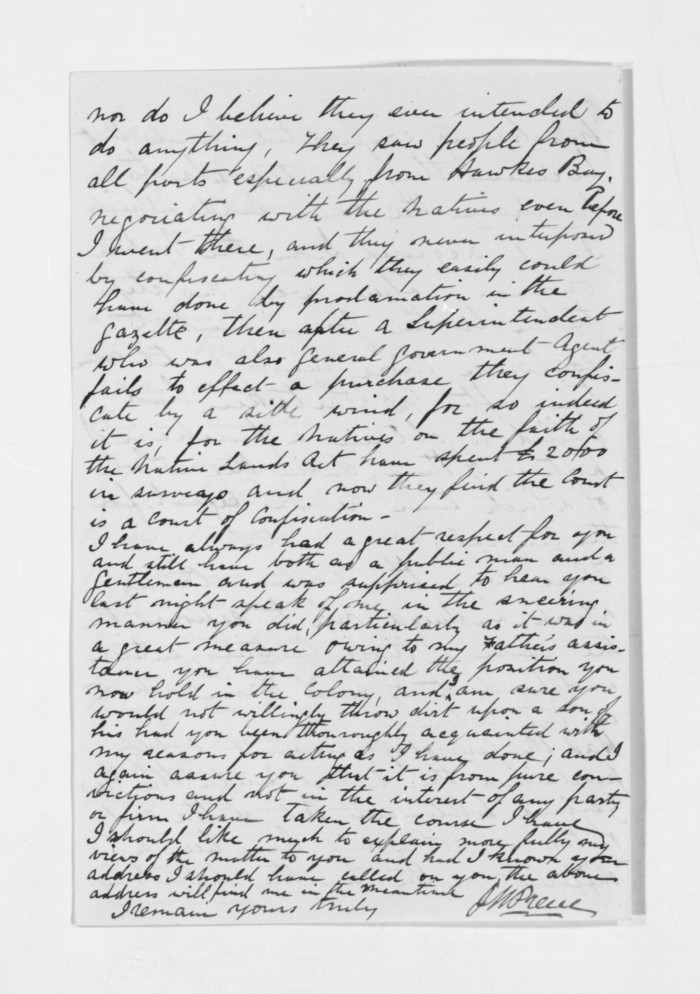 nor do I believe they ever intended to
do anything, They saw people from
all parts especially from Hawkes Bay,
negociating with the Natives even before
I went there, and they never interposed
by confiscating which they easily could
have done by proclamation in the
gazette, then after a Superintendent
who was also General Government Agent
fails to effect a purchase they confis-
cate by a side wind, for so indeed
it is, for the Natives on the faith of
the Native Lands Act have spent £2000
in surveys and now they find the Court
is a Court of Confiscation -
I have always had a great respect for you
and still have both as a public man and a
Gentleman and was supprised to hear you
last night speak of me in the sneering
manner you did, particularly as it was in
a great measure owing to my Father's assis-
tance you have attained the position you
now hold in the Colony, and I am sure you
would not willingly throw dirt upon a son of
his had you been thouroughly acquainted with
my reasons for acting as I have done; and I
again assure you that it is from pure con-
victions and not in the interest of any party
or firm I have taken the course I have
I should like much to explain more fully my
views of the matter to you and had I known your
address I should have called on you, the above
address will find me in the meantime
I remain yours truly